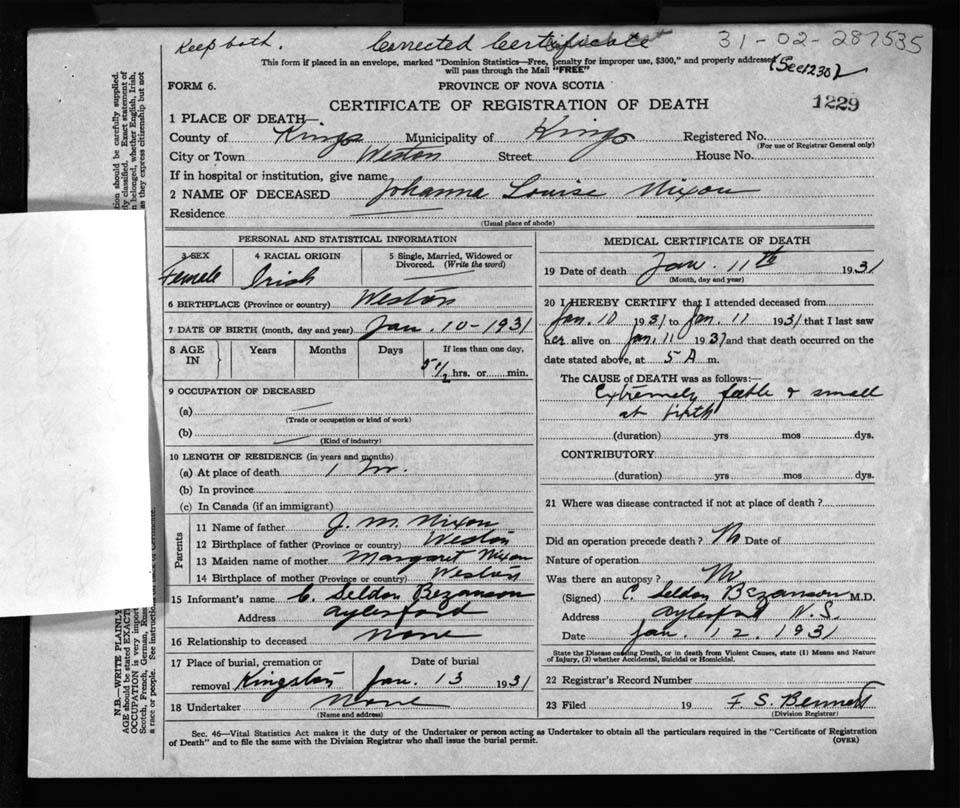 Keep both. Corrected Certificate 31-02-287535
This form if placed in an envelope, marked "Dominion Statistics—Free, penalty for improper use, $300," and properly addressed
will pass through the Mail "FREE" (See 1230)
FORM 6. PROVINCE OF NOVA SCOTIA
CERTIFICATE OF REGISTRATION OF DEATH 1229
1 PLACE OF DEATH—
County of Kings Municipality of Kings Registered No.
(For use of Registrar General only)
City or Town Weston Street House No.
If in hospital or institution, give name
2 NAME OF DECEASED Johanna Louise Nixon
Residence
(Usual place of abode)
PERSONAL AND STATISTICAL INFORMATION
3 SEX 4 RACIAL ORIGIN 5 Single, Married, Widowed or
Divorced. (Write the word)
Female Irish
6 BIRTHPLACE (Province or country) Weston
7 DATE OF BIRTH (month, day and year) Jan. 10-1931
8 AGE IN Years Months Days If less than one day,
5 1/2 hrs. or min.
9 OCCUPATION OF DECEASED
(a)
(Trade or occupation or kind of work)
(b)
(Kind of industry)
10 LENGTH OF RESIDENCE (in years and months)
(a) At place of death 1
(b) In province
(c) In Canada (if an immigrant)
Parents
11 Name of father J. M. Nixon
12 Birthplace of father (Province or country) Weston
13 Maiden name of mother Margaret Nixon
14 Birthplace of mother (Province or country) Weston
15 Informant's name C. Seldon Bezanson
Address Aylesford
16 Relationship to deceased None
17 Place of burial, cremation or Date of burial
removal Kingston Jan. 13 1931
18 Undertaker None
(Name and address)
MEDICAL CERTIFICATE OF DEATH
19 Date of death Jan. 11th 1931
(Month, day and year)
20 I HEREBY CERTIFY that I attended deceased from
Jan. 10 1931 to Jan. 11 1931 that I last saw
her alive on Jan. 11 1931 and that death occurred on the
date stated above, at 5 A m.
The CAUSE of DEATH was as follows:—
Extremely feeble & small
at birth
(duration) yrs mos dys.
CONTRIBUTORY
(duration) yrs mos dys.
21 Where was disease contracted if not at place of death?
Did an operation precede death? No Date of
Nature of operation
Was there an autopsy? No
(Signed) C. Seldon Bezanson M.D.
Address Aylesford N.S.
Date Jan. 12. 1931
State the Disease causing Death, or in death from Violent Causes, state (1) Means and Nature
of Injury, (2) whether Accidental, Suicidal or Homicidal.
22 Registrar's Record Number
23 Filed 19 F. S. Bennett
(Division Registrar)
Sec. 46—Vital Statistics Act makes it the duty of the Undertaker or person acting as Undertaker to obtain all the particulars required in the "Certificate of Registration
of Death" and to file the same with the Division Registrar who shall issue the burial permit. (OVER)